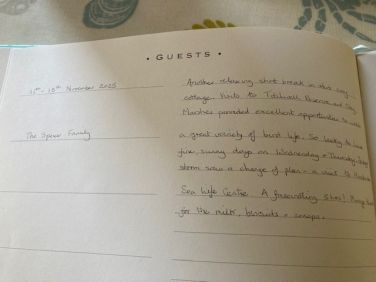 • GUESTS •
11th - 15th November 2025
The Spencer Family
Another relaxing short break in this cosy
cottage. Visits to Titchwell Reserve and Cley
Marshes provided excellent opportunities to
a great variety of bird life. So lucky to have
fine, sunny days on Wednesday + Thursday.
storm saw a change of plan - a visit to
Sea Life Centre. A fascinating
for the milk, biscuits +